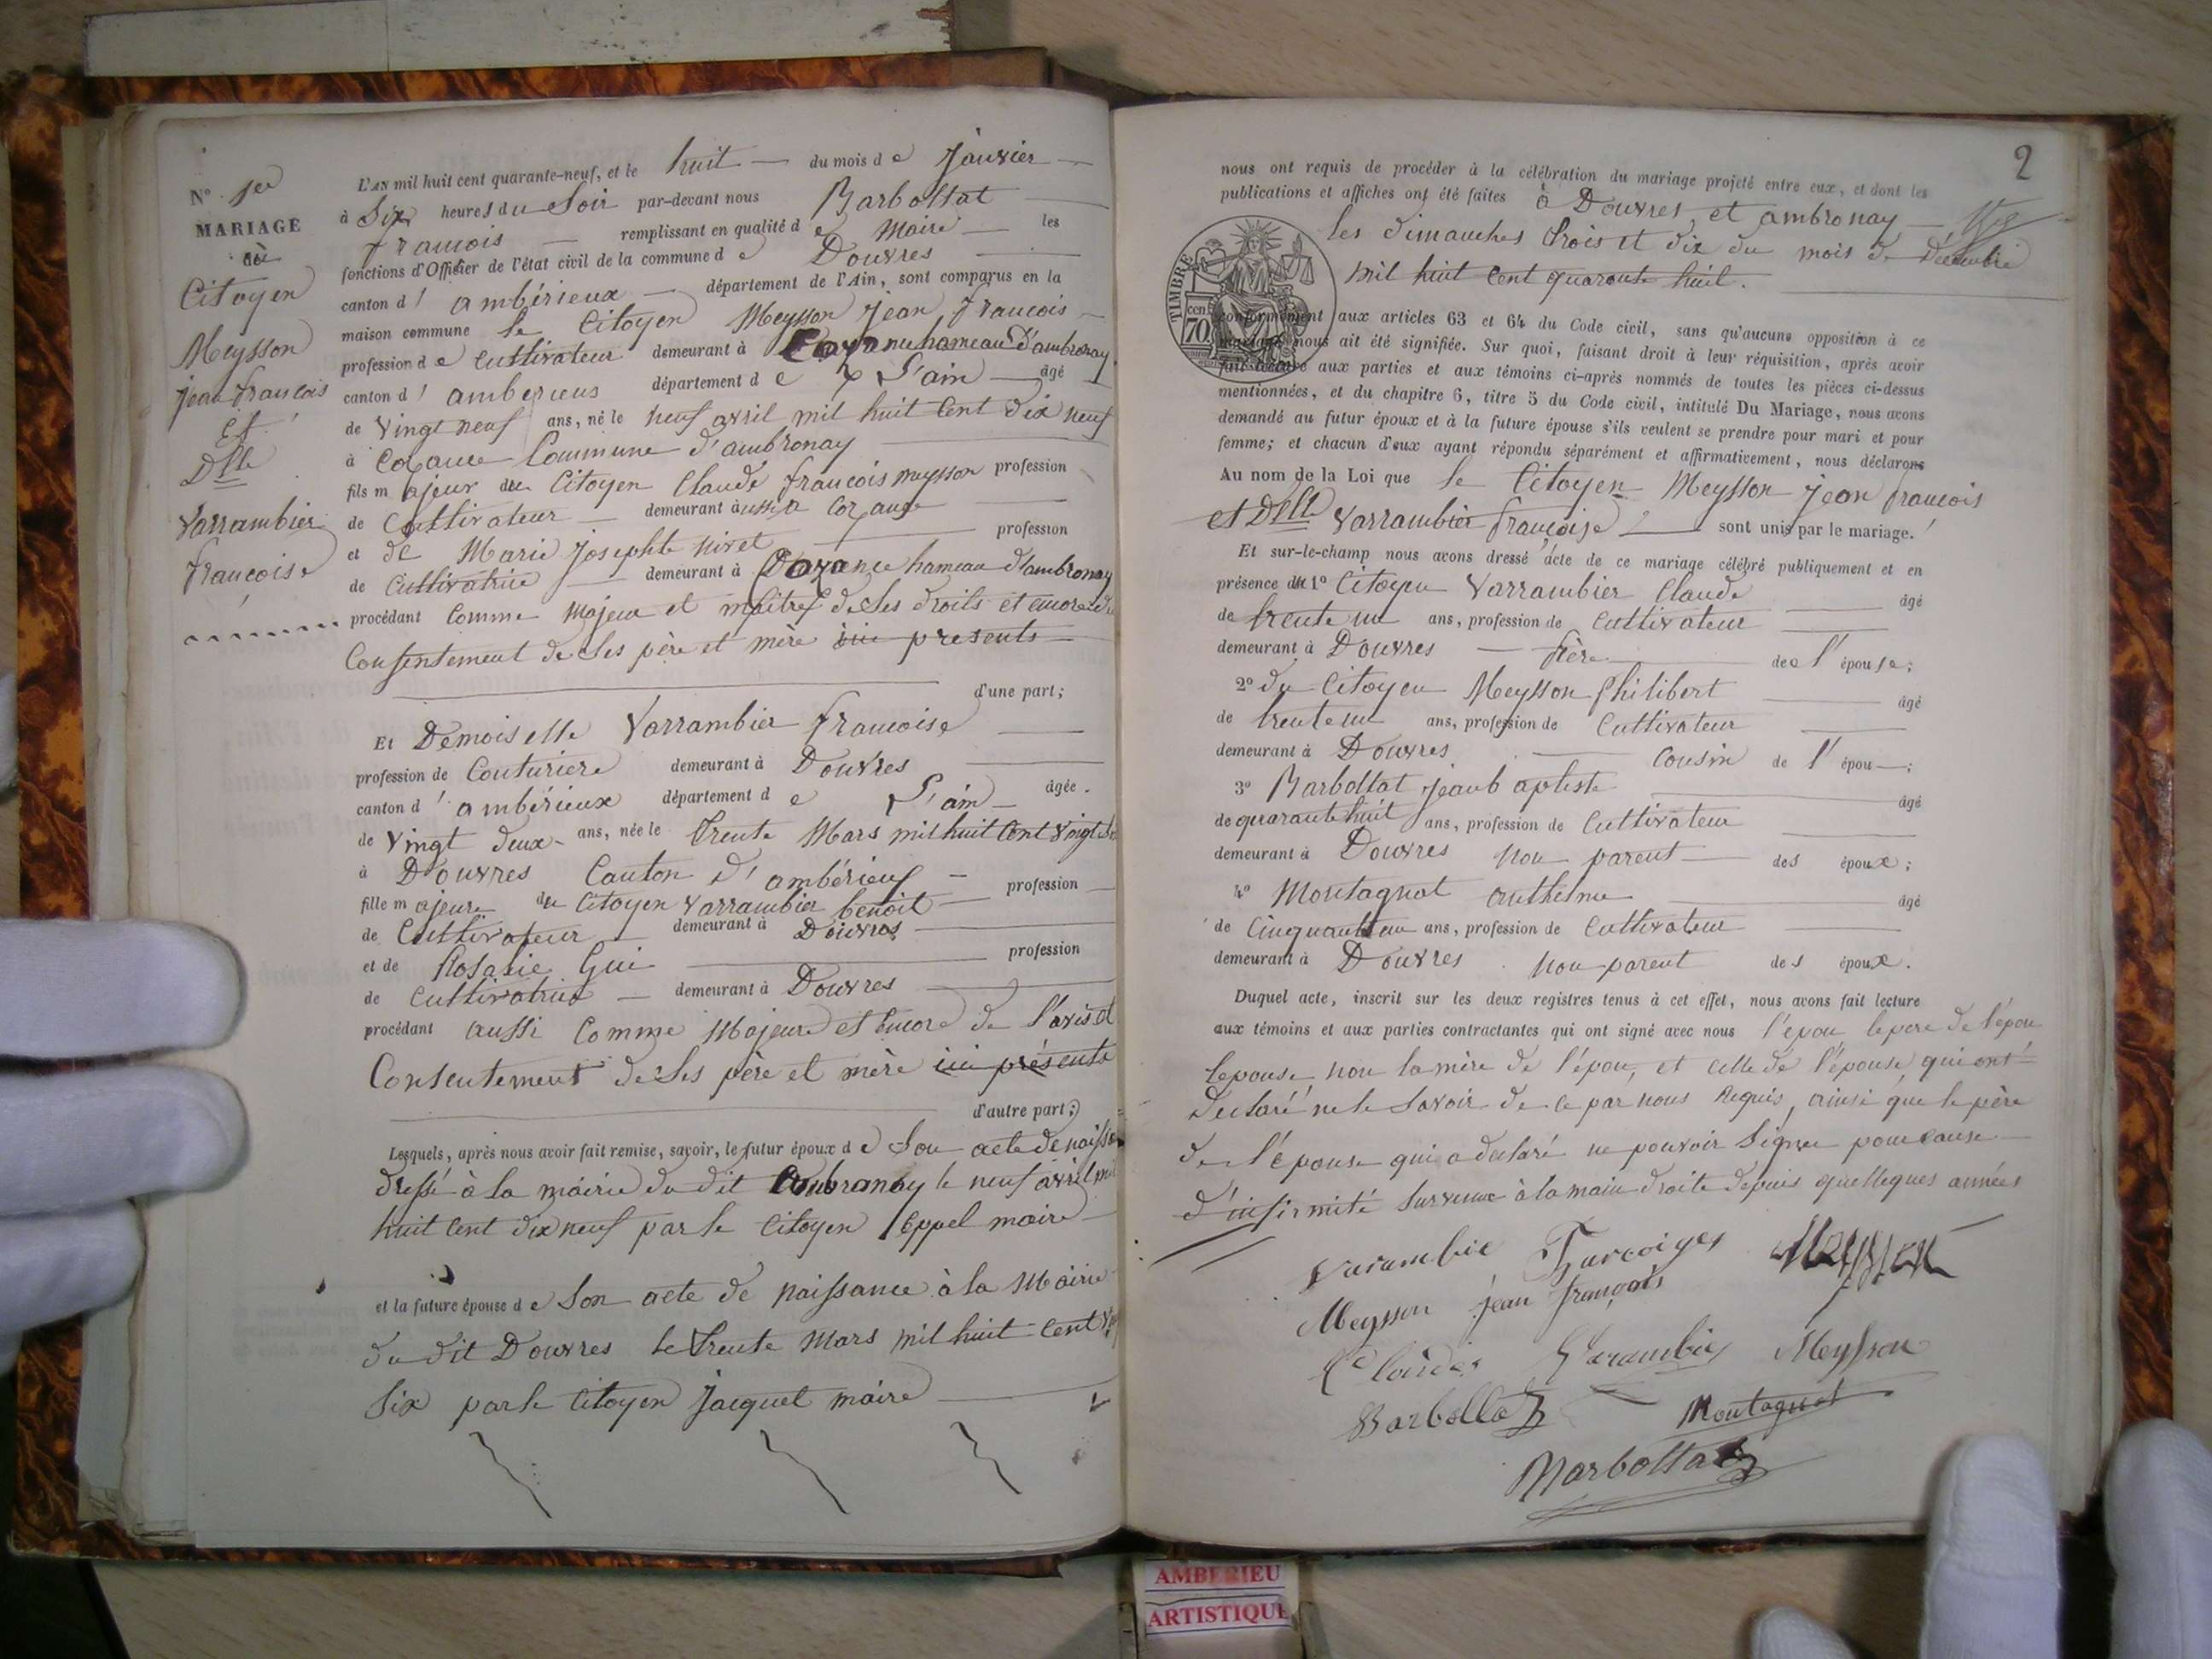 N° 1er
MARIAGE
du
Citoyen
Meysson
jean francois
Et
Dlle
Varrambier
françoise
L'AN mil huit cent quarante-neuf, et le huit du mois de Janvier
à Six heures du Soir par-devant nous Barbollat
francois remplissant en qualité de Maire les
fonctions d'Officier de l'état civil de la commune de Douvres
canton d' ambérieux département de l'Ain, sont comparus en la
maison commune le Citoyen Meysson Jean francois
profession de Cultivateur demeurant à Cozance hameau d'ambronay
canton d' amberieux département de L'ain âgé
de Vingt neuf ans, né le neuf avril mil huit Cent dix neuf
à Cozance Commune d'ambronay
fils majeur du Citoyen Claude francois meysson profession
de Cultivateur demeurant aussi a Cozance
et de Marie Josephte nivet profession
de Cultivatrice demeurant à Cozance hameau d'ambronay
procédant Comme Majeur et maître de Ses droits et encore du
Consentement de Ses père et mère ici presents
d'une part;
Et Demoiselle Varrambier francoise
profession de Couturiere demeurant à Douvres
canton d' ambérieux département de L'ain âgée
de Vingt deux ans, née le trente Mars mil huit Cent Vingt Six
à Douvres Canton d'ambérieux
fille majeure du Citoyen Varrambier benoit profession
de Cultivateur demeurant à Douvres
et de Rosalie Gui profession
de Cultivatrice demeurant à Douvres
procédant aussi Comme Majeure et encore de l'avis et
Consentement de Ses père et mère ici présents
d'autre part;
Lesquels, après nous avoir fait remise, savoir, le futur époux de Son acte de naissance
dressé à la mairie du dit Ambronay le neuf avril mil
huit Cent dix neuf par le Citoyen maire
et la future épouse de Son acte de naissance à la Mairie
du dit Douvres le trente Mars mil huit Cent Vingt
Six par le Citoyen Jacquet maire
2
nous ont requis de procéder à la célébration du mariage projeté entre eux, et dont les
publications et affiches ont été faites à Douvres et ambronay
les dimanches trois et dix du mois de Décembre
mil huit Cent quarante huit.
TIMBRE
70 cen
conformément aux articles 63 et 64 du Code civil, sans qu'aucune opposition à ce
mariage nous ait été signifiée. Sur quoi, faisant droit à leur réquisition, après avoir
fait lecture aux parties et aux témoins ci-après nommés de toutes les pièces ci-dessus
mentionnées, et du chapitre 6, titre 5 du Code civil, intitulé Du Mariage, nous avons
demandé au futur époux et à la future épouse s'ils veulent se prendre pour mari et pour
femme; et chacun d'eux ayant répondu séparément et affirmativement, nous déclarons
Au nom de la Loi que le Citoyen Meysson jean francois
et Dlle Varrambier françoise sont unis par le mariage.
Et sur-le-champ nous avons dressé acte de ce mariage célébré publiquement et en
présence du 1° Citoyen Varrambier Claude âgé
de trente un ans, profession de Cultivateur
demeurant à Douvres frère de l'épouse;
2° du Citoyen Meysson philibert âgé
de trente un ans, profession de Cultivateur
demeurant à Douvres Cousin de l'épou;
3° Barbollat Jean baptiste âgé
de quarante huit ans, profession de Cultivateur
demeurant à Douvres non parent des époux;
4° Montagnat anthelme âgé
de Cinquante un ans, profession de Cultivateur
demeurant à Douvres non parent des époux.
Duquel acte, inscrit sur les deux registres tenus à cet effet, nous avons fait lecture
aux témoins et aux parties contractantes qui ont signé avec nous l'épou le pere de l'épou
lepouse, non la mère de l'épou, et celle de l'épouse, qui ont
déclaré ne le Savoir de ce par nous Requis, ainsi que le père
de l'épouse qui a déclaré ne pouvoir Signer pour cause
d'infirmité Survenue à la main droite depuis quelleques années
Varambie Francoise Meysson
Meysson jean françois
Claude Varambie Meysson
Barbollat Montagnat
Barbollat
AMBERIEU
ARTISTIQUE